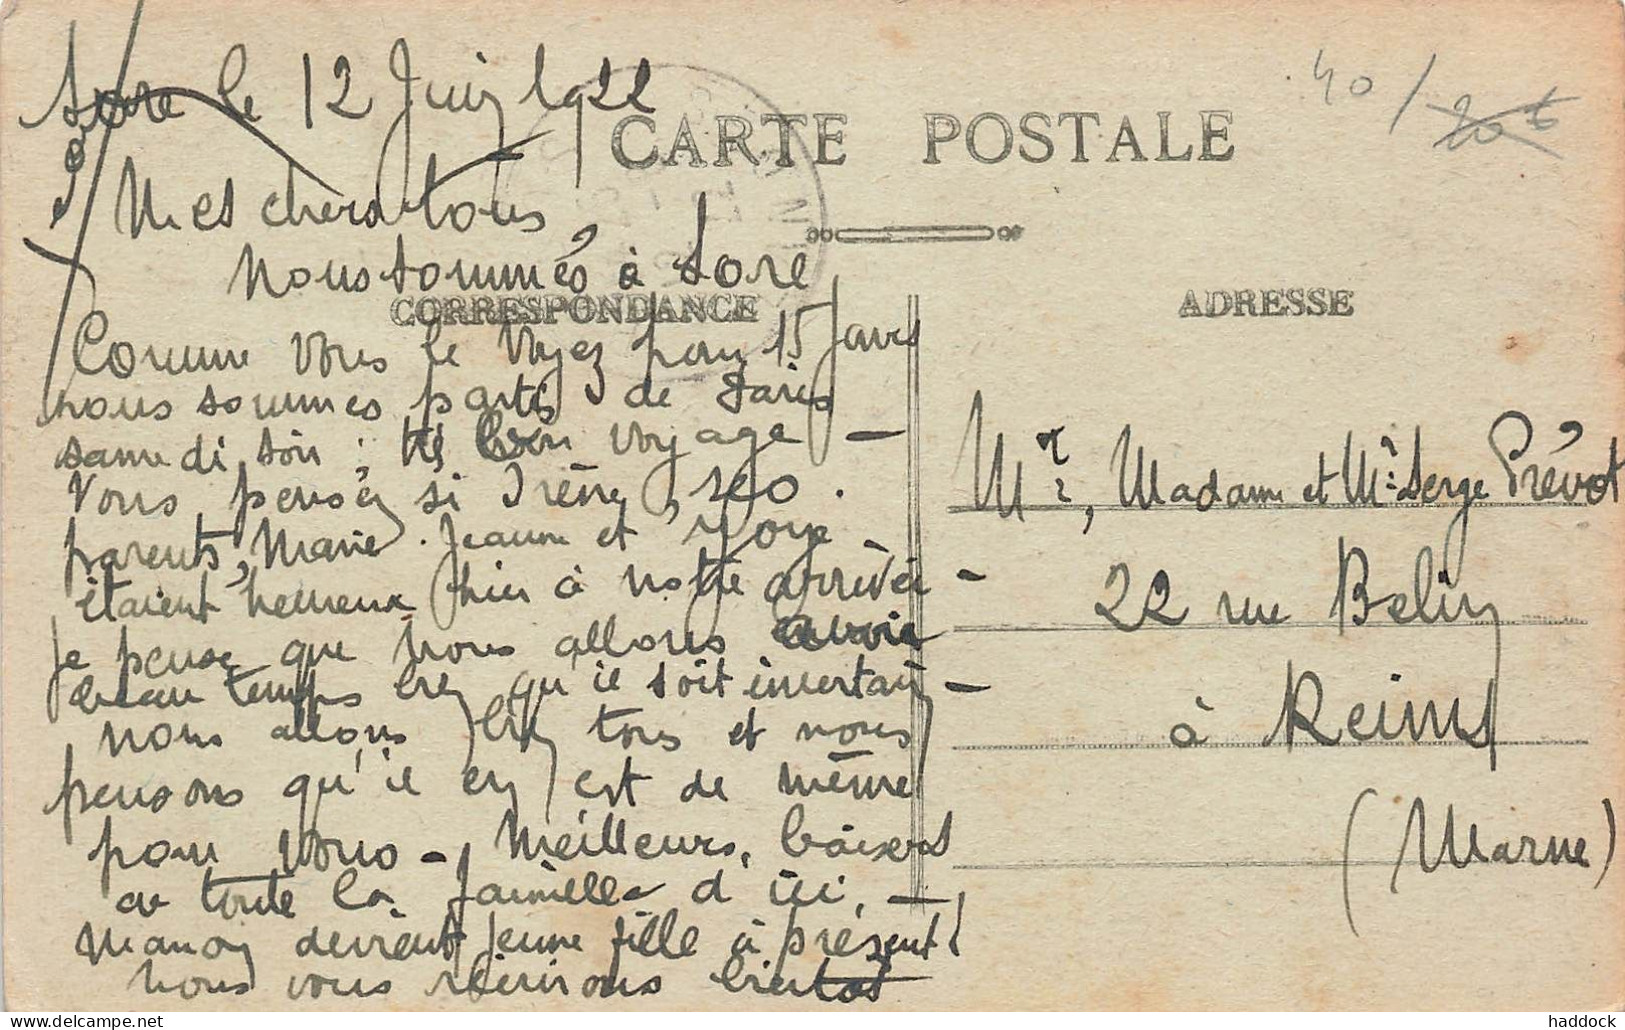 Sore le 12 Juin 1922
40 / 20 €
CARTE POSTALE
Mes chers tous,
Nous sommes à Sore
CORRESPONDANCE
Comme vous le voyez pour 15 Jours
nous sommes partis de Paris
samedi soir : très bon voyage —
Vous pensez si Irène, ses
parents, Marie Jeanne et
étaient heureux hier à notre arrivée —
Je pense que nous allons avoir
beau temps bien qu'il soit incertain —
nous allons bien tous et nous
pensons qu'il en est de même
pour vous — Meilleurs baisers
de toute la famille d'ici, —
Manon devient jeune fille à présent !
nous vous récrirons bientôt
ADRESSE
Mr, Madame et Mr Serge Prévot
22 rue Belin
à Reims
(Marne)
delcampe.net
haddock